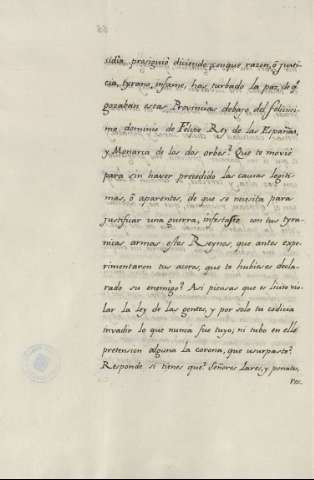 cidia, prosiguiò diciendo porque razon, ò justi-
cia, tyrano, infame, has turbado la paz, de q.ᵉ
gozaban estas Provincias debajo del felicissi-
mo dominio de Felipe Rey de las Españas,
y Monarca de los dos orbes? Que te moviò
para sin haver precedido las causas legiti-
mas, ò aparentes, de que se necesita para
justificar una guerra, infestaste con tus tyra-
nicas armas essos Reynos, que antes expe-
rimentaron tus aceros, que te hubieses decla-
rado su enemigo? Asi piensas que es licito vio-
lar la ley de las gentes, y por solo tu codicia
invadir lo que nunca fue tuyo, ni tubo en ello
pretension alguna la corona, que usurpaste?
Responde si tienes que? Señores Lares, y penates,